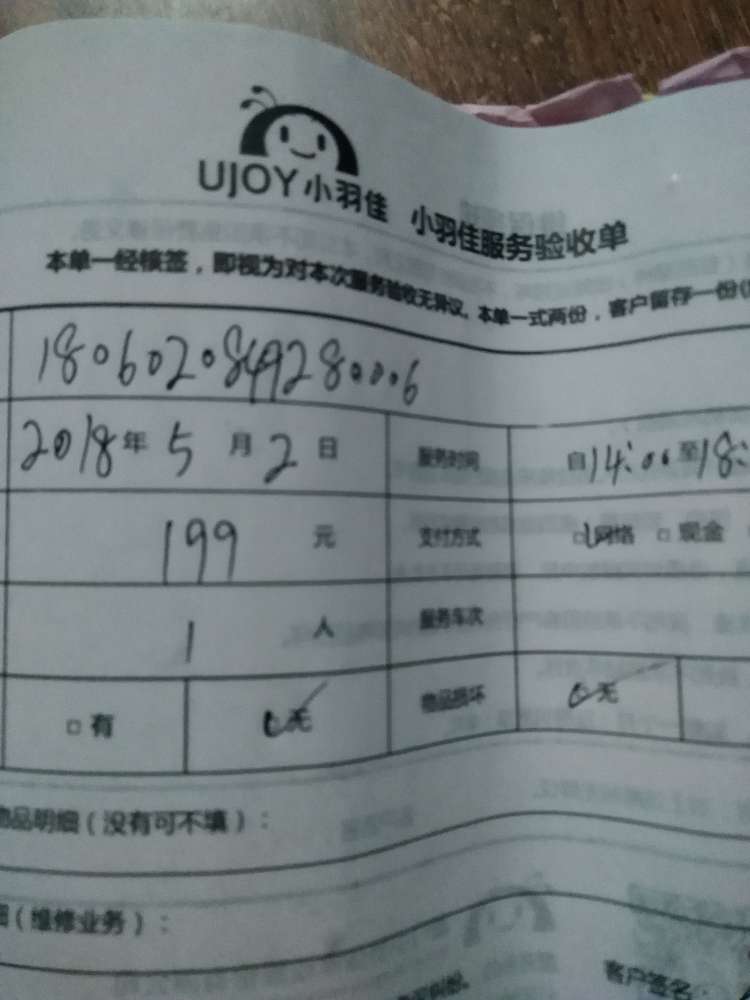 UJOY小羽佳 小羽佳服务验收单
本单一经核签，即视为对本次服务验收无异议。本单一式两份，客户留存一份(
1806020849280006
2018年5月2日 服务时间 自14:00至18:
199元 支付方式 网络 □现金
1人 服务车次
□有 无 物品损坏 无
物品明细(没有可不填)：
(维修业务)：
客户签名：